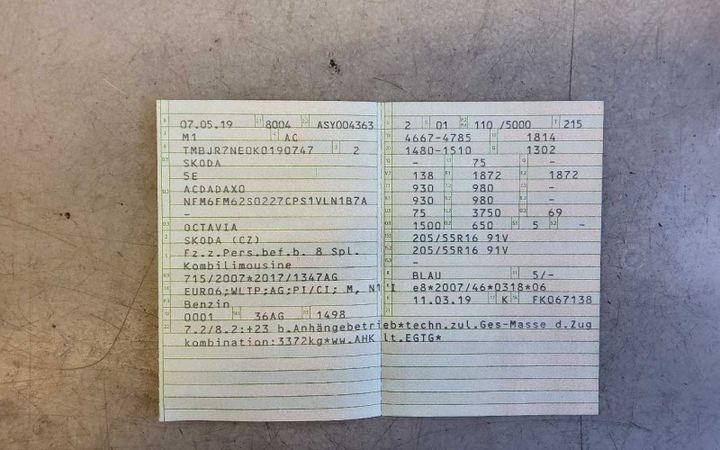 07.05.19 8004 ASY004363
M1 AC
TMBJR7NE0K0190747 2
SKODA
5E
ACDADAXO
NFM6FM62S0227CPS1VLN1B7A
-
OCTAVIA
SKODA (CZ)
Fz.z.Pers.bef.b. 8 Spl.
Kombilimousine
715/2007*2017/1347AG
EURO6;WLTP;AG;PI/CI; M, N1 I
Benzin
0001 36AG 1498
2 01 110 /5000 215
4667-4785 1814
1480-1510 1302
- 75 -
138 1872 1872
930 980 -
930 980 -
75 3750 69
1500 650 5 -
205/55R16 91V
205/55R16 91V
-
BLAU 5/-
e8*2007/46*0318*06
11.03.19 K FK067138
7.2/8.2:+23 b.Anhängebetrieb*techn.zul.Ges-Masse d.Zug
kombination:3372kg*ww.AHK lt.EGTG*